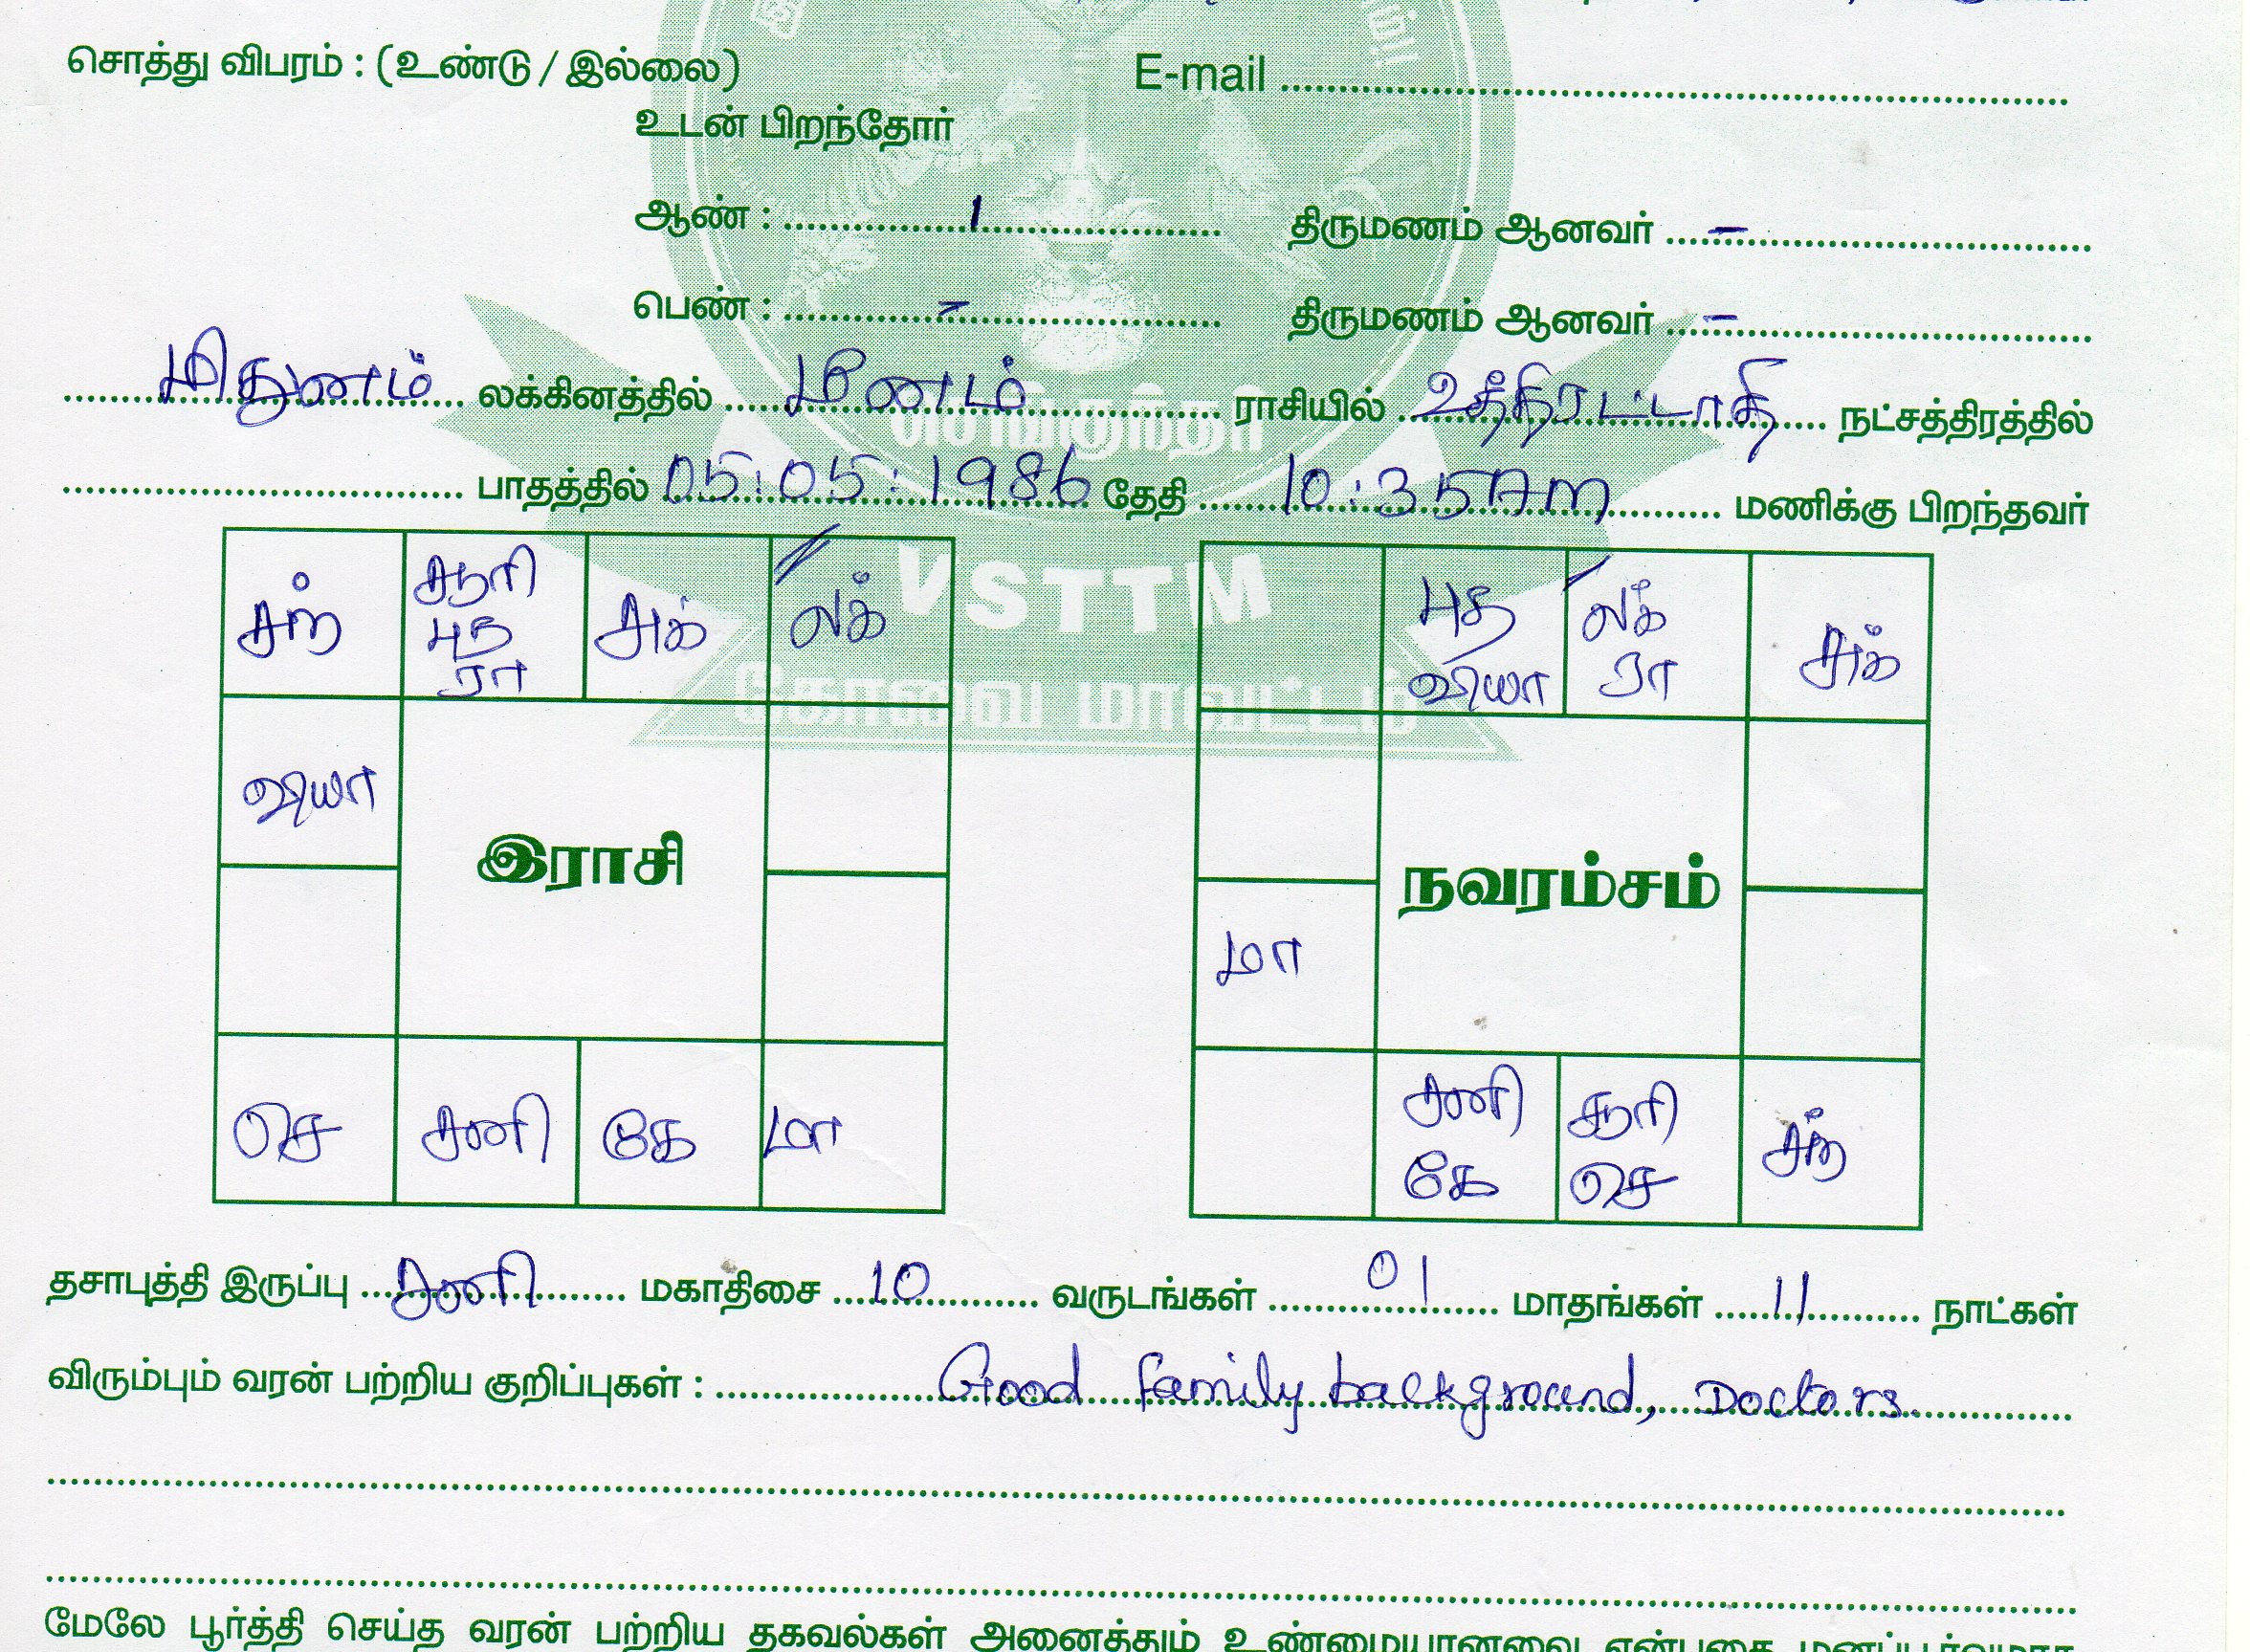 சொத்து விபரம் : (உண்டு / இல்லை) E-mail
உடன் பிறந்தோர்
ஆண் : 1 திருமணம் ஆனவர் -
பெண் : - திருமணம் ஆனவர் -
மிதுனம் லக்கினத்தில் மீனம் ராசியில் உத்திரட்டாதி நட்சத்திரத்தில்
பாதத்தில் 05:05:1986 தேதி 10:35Am மணிக்கு பிறந்தவர்
VSTTM
கோவை மாவட்டம்
சந் சூரி புத ரா சுக் லக்
வியா
இராசி
செ சனி கே மா
புத வியா லக் ரா சுக்
நவரம்சம்
மா
சனி கே சூரி செ சந்
தசாபுத்தி இருப்பு சனி மகாதிசை 10 வருடங்கள் 01 மாதங்கள் 11 நாட்கள்
விரும்பும் வரன் பற்றிய குறிப்புகள் : Good family background, Doctors.
மேலே பூர்த்தி செய்த வரன் பற்றிய தகவல்கள் அனைத்தும் உண்மையானவை என்பதை மனப்பூர்வமாக